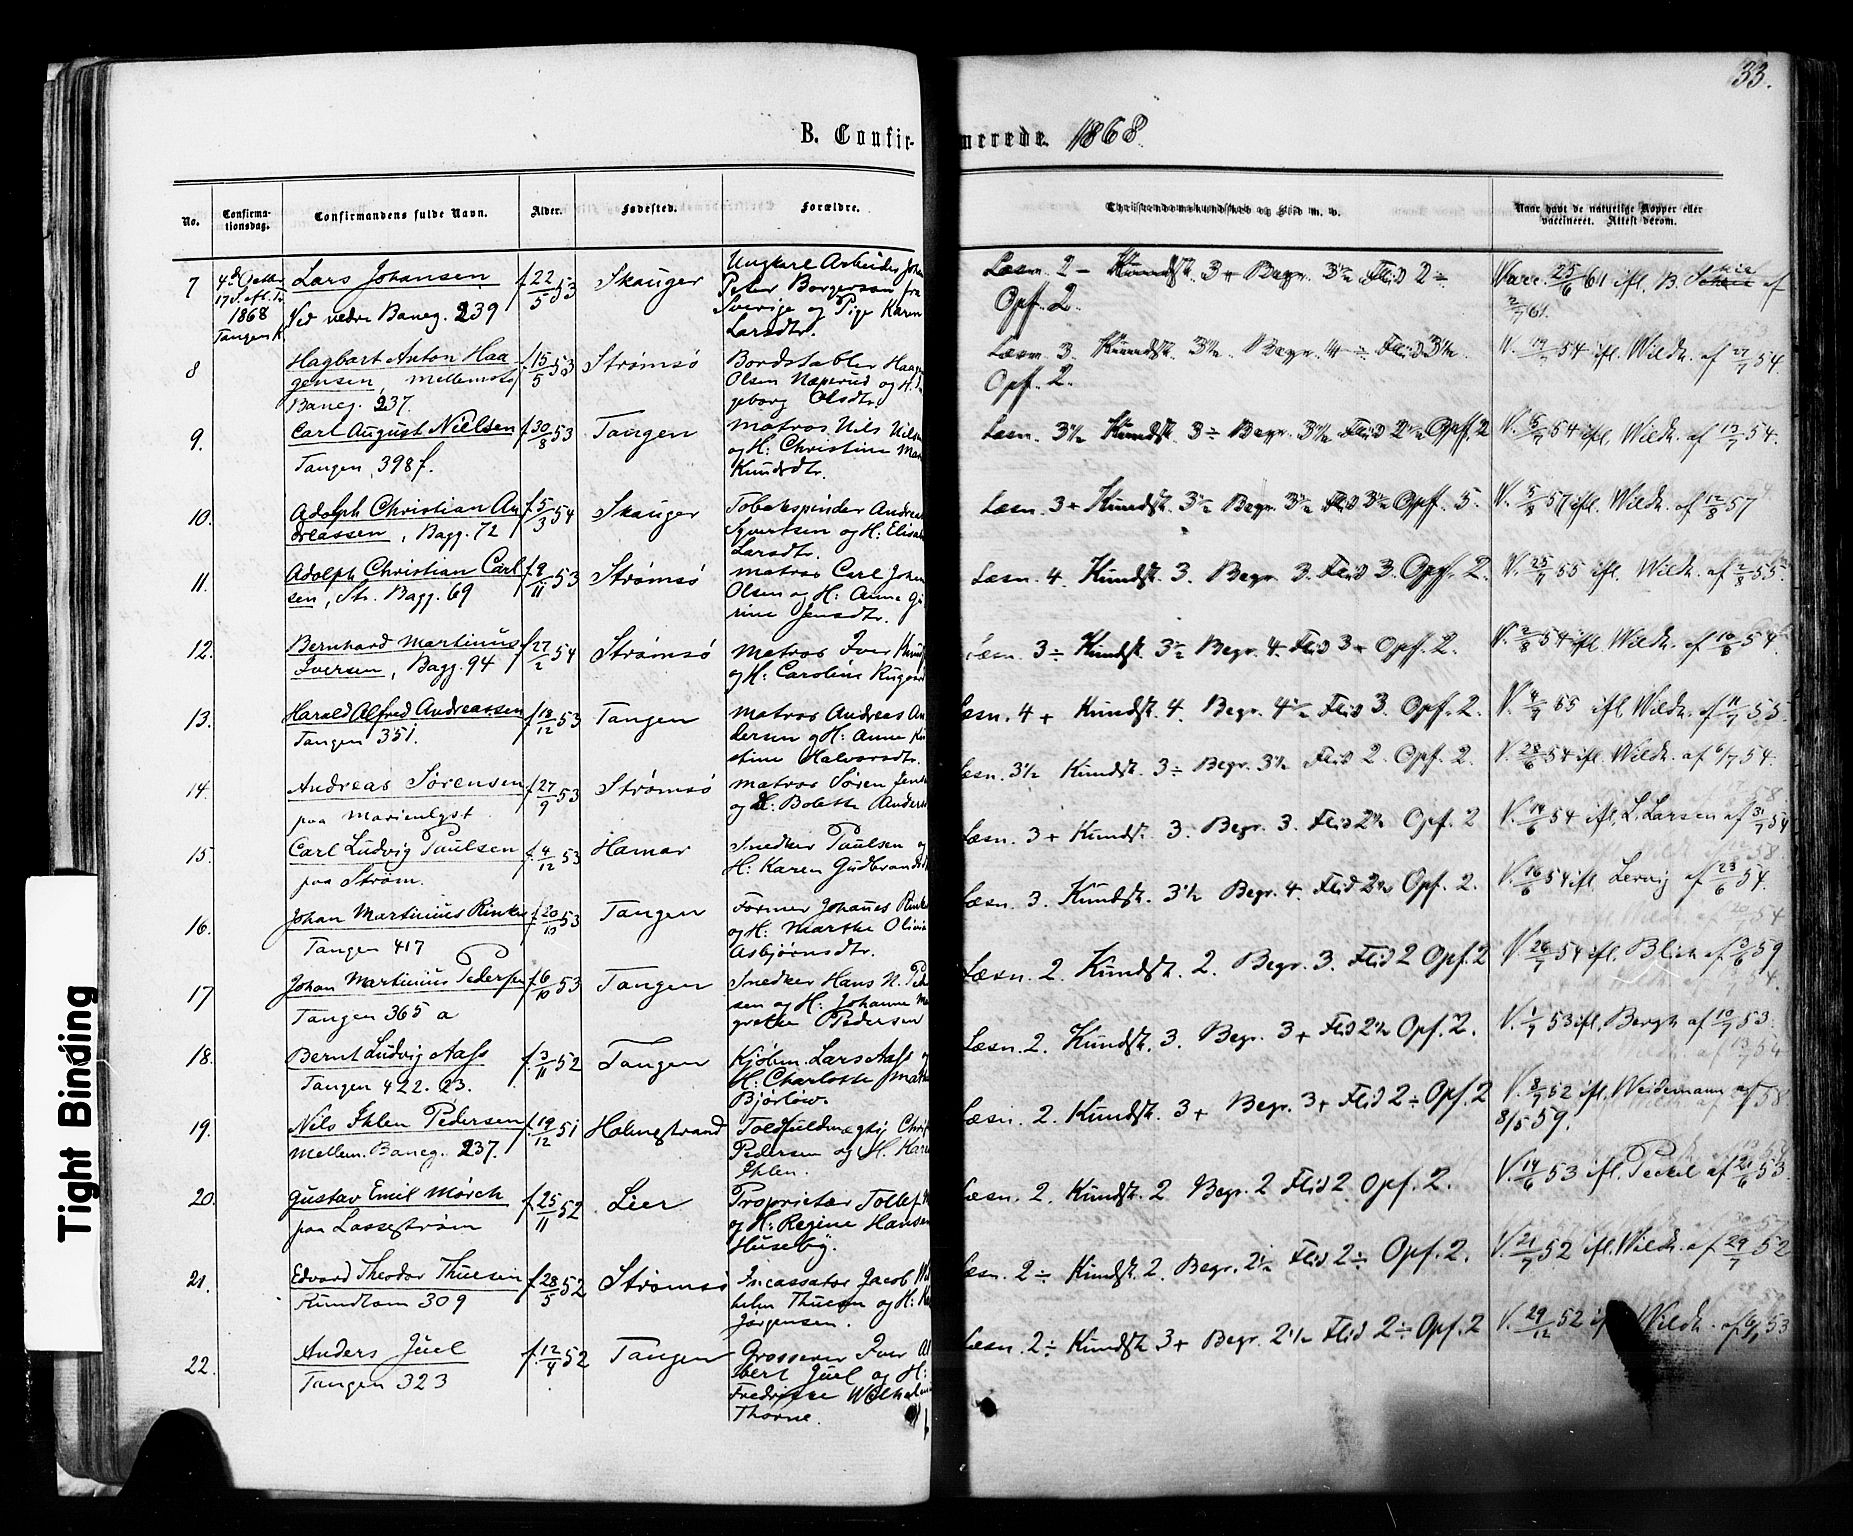 33.
B. Confirmerede. 1868.
No. Confirmationsdag. Confirmandens fulde Navn. Alder. Fødested. Forældre. Christendomskundskab og Flid m. v. Naar havt de naturlige Kopper eller vaccineret. Attest derom.
7 4de Octbr Lars Johansen f. 22/5 53 Skauger Ungkarl Arbeider Joh Læsn. 2 - Kundsk. 3+ Begr. 3½ Flid 2÷ Vacc. 25/6 61 ifl. B. af
17 S. efl. Tr. Ved nedre Baneg. 239 Peter Borgersen fra Opf. 2. 2/7 61.
1868 Sverige og Pige Karen
Tangen K. Larsdtr.
8 Hagbart Anton Haa f. 15/5 53 Strømsø Bordstabler Haag Læsn. 3. Kundsk. 3½. Begr. 4÷ Flid 3½. V. 19/7 54 ifl. Wildh. af 27/7 54.
gensen, mellemste Olsen Næperud og H. In Opf. 2.
Baneg. 237. geborg Olsdtr.
9. Carl August Nielsen f. 30/8 53 Tangen Matros Nils Nils Læsn. 3½ Kundsk. 3÷ Begr. 3½ Flid 2½ Opf. 2 V. 5/7 54 ifl. Wildh. af 13/7 54.
Tangen, 398 f. og H. Christine Mar
Knudsdtr.
10. Adolph Christian An f. 5/3 54 Skauger Tobakspinder Andreas Læsn. 3+ Kundsk. 3½ Begr. 3½ Flid 3½ Opf. 5. V. 5/8 57 ifl. Wildh. af 12/8 57
dreassen, Bagg. 72 Syvertsen og H: Elisa
Larsdtr.
11. Adolph Christian Carl f. 9/11 53 Strømsø Matros Carl Joha Læsn. 4. Kundsk. 3. Begr. 3. Flid 3. Opf. 2. V. 25/7 55 ifl. Wildh. af 2/8 55.
sen, Str. Bagg. 69 Olsen og H: Anne Gu
rine Jensdtr.
12. Bernhard Martinus f. 27/2 54 Strømsø Matros Iver Knud Læsn. 3÷ Kundsk. 3½ Begr. 4. Flid 3+ Opf. 2. V. 2/8 54 ifl. Wildh. af 10/8 54
Iversen, Bagg. 94 og H: Caroline
13. Harald Alfred Andreassen f. 18/12 53 Tangen Matros Andreas An Læsn. 4+ Kundsk. 4. Begr. 4½ Flid 3. Opf. 2. V. 4/7 55 ifl. Wildh. af 11/7 55.
Tangen 351. dersen og H: Anne Kir
stine Halvorsdtr.
14. Andreas Sørensen f. 27/9 53 Strømsø Matros Søren Jens Læsn. 3½ Kundsk. 3÷ Begr. 3½ Flid 2. Opf. 2. V. 28/6 54 ifl. Wildh. af 6/7 54.
paa Marienlyst. og H: Bolette Anders
15. Carl Ludvig Paulsen f. 4/12 53 Hamar Snedker Paulsen og Læsn. 3+ Kundsk. 3. Begr. 3. Flid 2½ Opf. 2 V. 14/6 54 ifl. L. Larsen af 31/7 54
paa Strøm. H: Karen Gudbrandsd
16. Johan Martinius Rinke f. 20/10 53 Tangen Former Johannes Rinke Læsn. 3. Kundsk. 3½ Begr. 4. Flid 2½ Opf. 2. V. 16/6 54 ifl. Lervig af 23/6 54.
Tangen 417 og H: Marthe Olivia
Asbjørnsdtr.
17 Johan Martinius Pedersen f. 6/10 53 Tangen Snedker Hans N. Pe Læsn. 2. Kundsk. 2. Begr. 3. Flid 2 Opf. 2 V. 26/7 54 ifl. Blich af 3/6 59
Tangen 365 a sen og H. Johanne M
grethe Pedersen
18. Bernt Ludvig Aass f. 3/11 52 Tangen Kjøbm. Lars Aass og Læsn. 2. Kundsk. 3. Begr. 3+ Flid 2½ Opf. 2. V. 1/7 53 ifl. Bergh af 10/7 53.
Tangen 422. 23. H: Charlotte
Bjørlow.
19. Nils Ihlen Pedersen f. 19/12 51 Holmestrand Toldfuldmægtig Chri Læsn. 2. Kundsk. 3+ Begr. 3+ Flid 2÷ Opf. 2 V. 8/7 52 ifl. Weidemann af
Mellem. Baneg. 237. Pedersen og H. Kare 8/5 59.
Ihlen.
20. Gustav Emil Mørch f. 25/11 52 Lier Proprietær Tollef Læsn. 2. Kundsk. 2 Begr. 2 Flid 2. Opf. 2. V. 14/6 53 ifl. Peckel af 21/6 53
paa Lassestrøm og H: Regine Hansen
Huseby.
21. Edvard Theodor Thuesen f. 28/5 52 Strømsø Incassator Jacob Wil Læsn. 2÷ Kundsk. 2. Begr. 2½ Flid 2÷ Opf. 2. V. 21/7 52 ifl. Wildh. af 29/7 52
Rundtom 309 helm Thuesen og H: Ka
Jørgensen.
22. Anders Juel f. 12/4 52 Tangen Grosserer Iver Al Læsn. 2÷ Kundsk. 3+ Begr. 2½ Flid 2÷ Opf. 2 V. 29/12 52 ifl. Wildh. af 6/1 53
Tangen 323 bert Juel og H:
Fredrikke Wilhelmi
Thorne.
Tight Binding